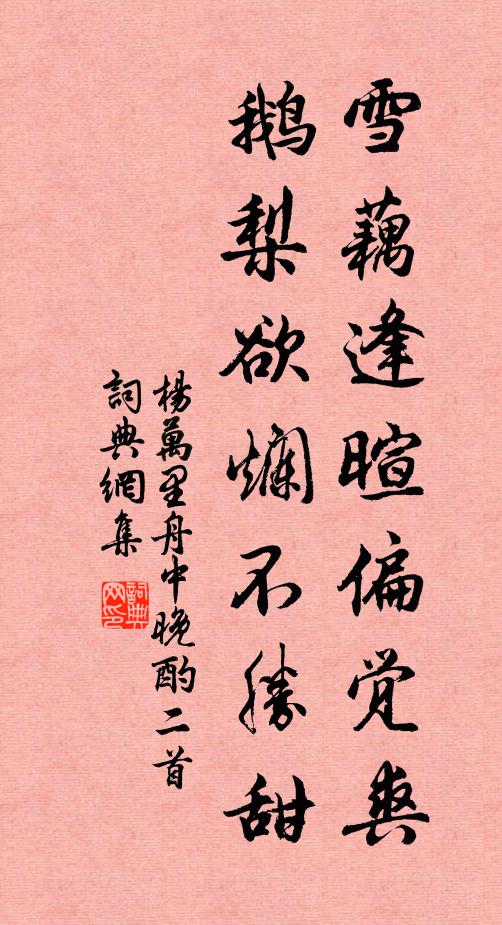 雪藕逢暄偏觉爽
鹅梨欲爛不勝甜
楊萬里舟中晚酌二首
詞典網集
詞典网印